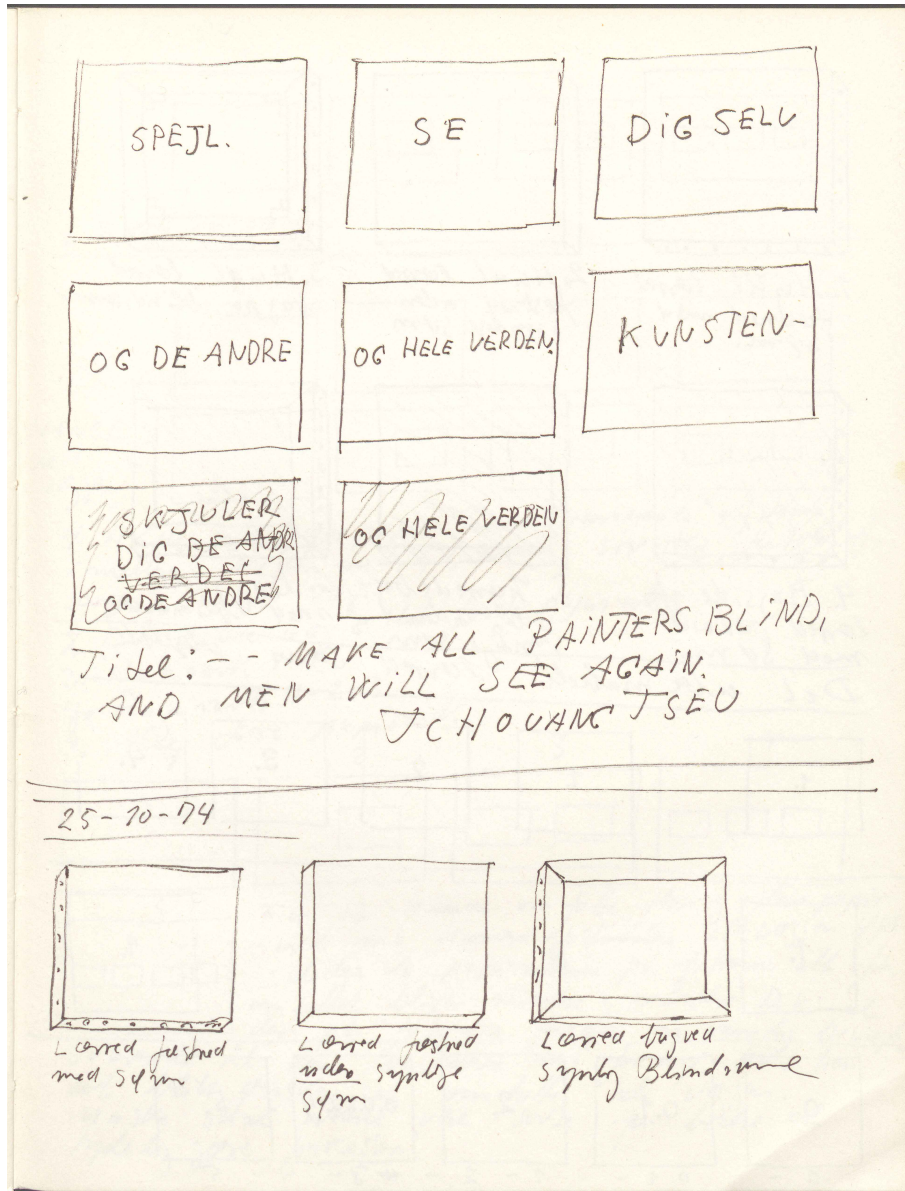 SPEJL.
SE
DIG SELV
OG DE ANDRE
OG HELE VERDEN.
KUNSTEN-
SKJULER
DIG DE ANDRE
VERDEN
OG DE ANDRE
OG HELE VERDEN
Titel: - - MAKE ALL PAINTERS BLIND,
AND MEN WILL SEE AGAIN.
TCHOUANG TSEU
25-10-74
Lærred fastned
med søm
Lærred fastned
uden synlige
søm
Lærred bagved
synlig Blindramme